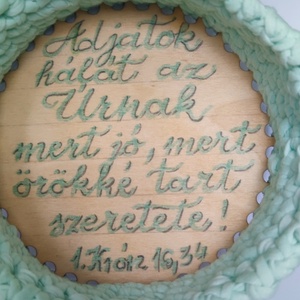 Adjatok
hálát az
Úrnak
mert jó, mert
örökké tart
szeretete!
1. Krón 16,34